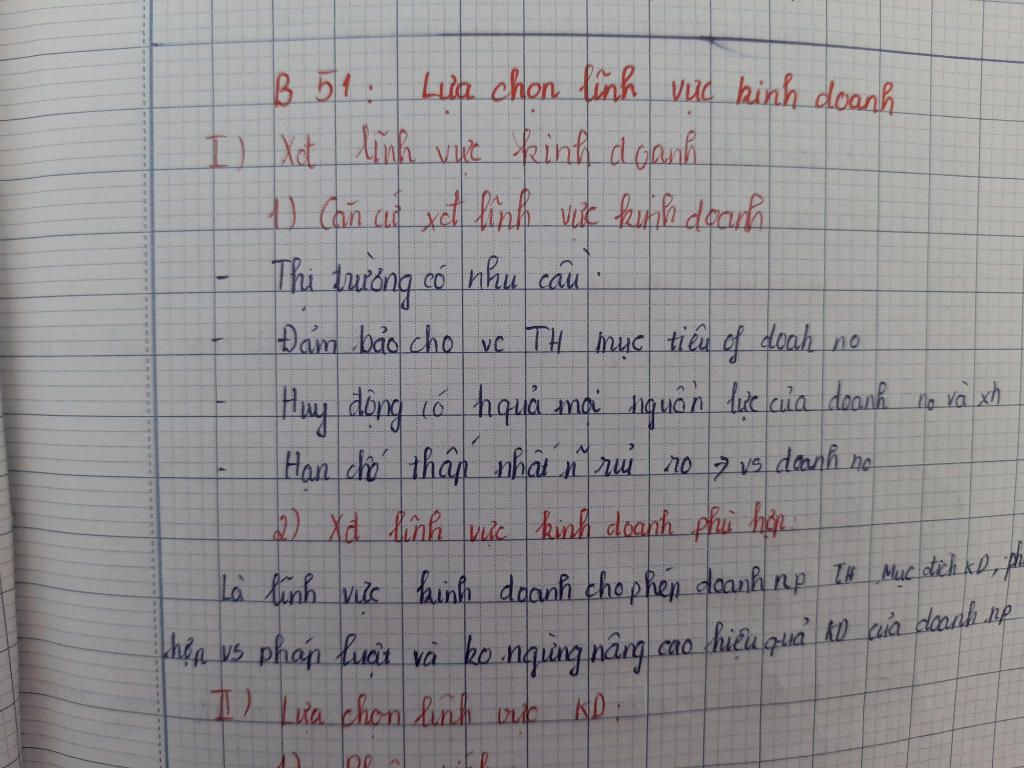 B 51: Lựa chọn lĩnh vực kinh doanh
I) Xđ lĩnh vực kinh doanh
1) Căn cứ xđ lĩnh vực kinh doanh
- Thị trường có nhu cầu.
- Đảm bảo cho vc TH mục tiêu of doah no
- Huy động có hquả mọi nguồn lực của doanh no và xh
- Hạn chế thấp nhất n~ rủi ro → vs doanh no
2) Xđ lĩnh vực kinh doanh phù hợp.
Là lĩnh vực kinh doanh cho phép doanh np TH mục đích KD, ph
hợp vs pháp luật và ko ngừng nâng cao hiệu quả KD của doanh np
II) Lựa chọn lĩnh vực KD:
1)